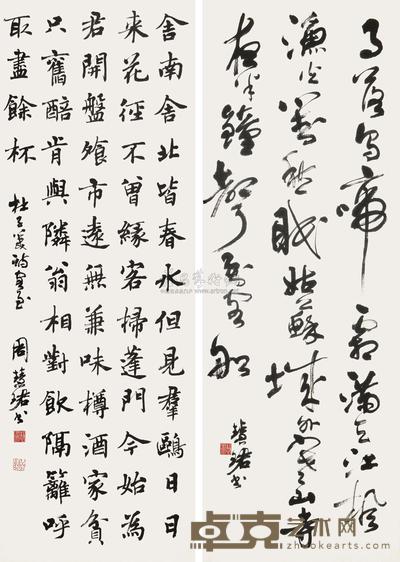 月落烏啼霜滿天江楓
漁火對愁眠姑蘇城外寒山寺
夜半鐘聲到客船
慧珺書
舍南舍北皆春水但見羣鷗日日
來花徑不曾緣客掃蓬門今始為
君開盤飱市遠無兼味樽酒家貧
只舊醅肯與隣翁相對飲隔籬呼
取盡餘杯
杜子美詩客至 周慧珺書
卓克艺术网
zhuokearts.com